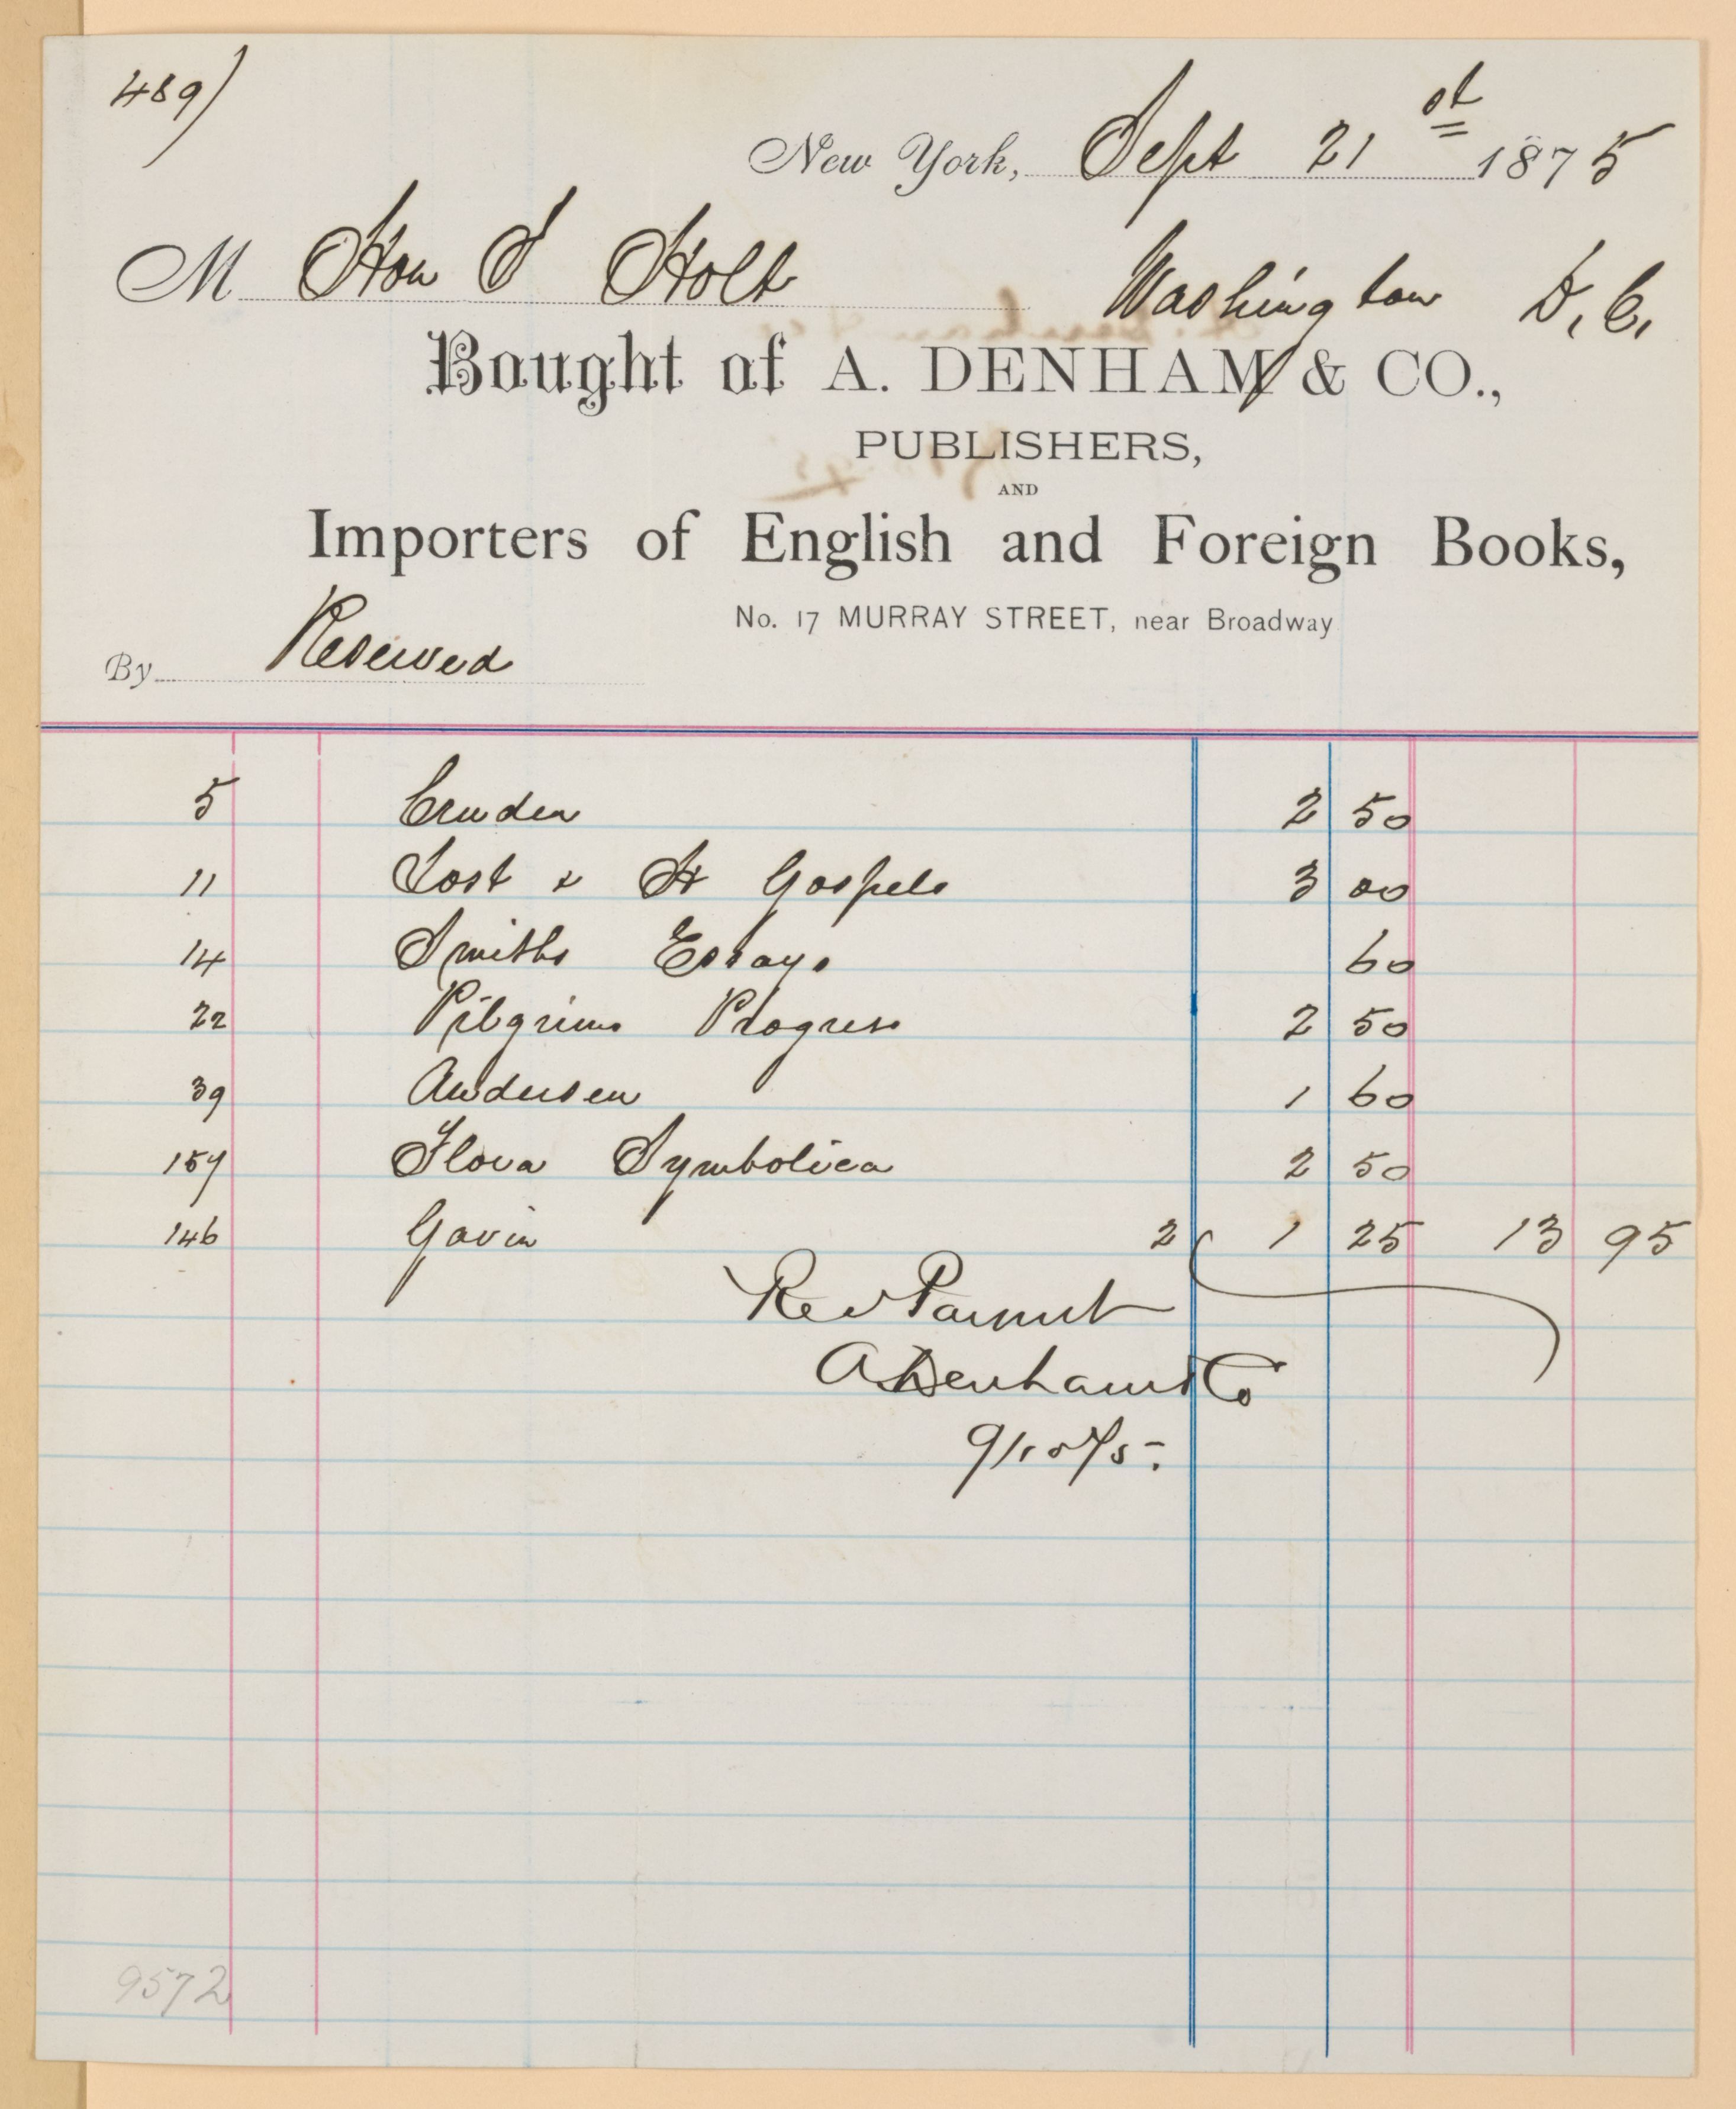 489)
New York, Sept 21st 1875
M Hon J Holt Washington D.C.
Bought of A. DENHAM & CO.,
PUBLISHERS,
AND
Importers of English and Foreign Books,
No. 17 MURRAY STREET, near Broadway
By Reserved
5 Cruden 2 50
11 Lost & H Gospels 3 00
14 Smiths Essays 60
22 Pilgrims Progress 2 50
39 Andersen 1 60
157 Flora Symbolica 2 50
146 Gavin 2 1 25 13 95
Rec Payment
A Denham & Co
9572